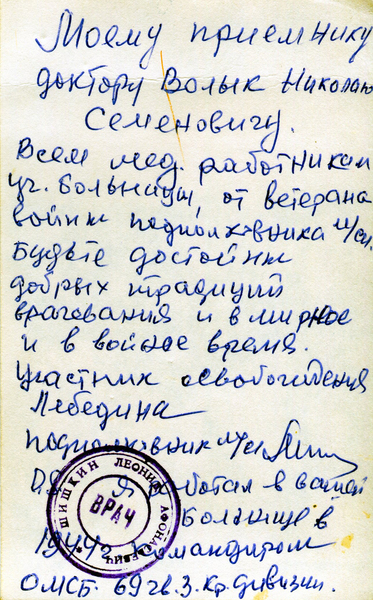 Моему приемнику
доктору Волык Николаю
Семеновичу.
Всем мед. работникам
уч. больницы, от ветерана
войны подполковника м/сл.
Будьте достойны
добрых традиций
врачевания и в мирное
и в войное время.
Участник освобождения
Лебедина
подполковник м/сл
Я работал в вашей
Больнице в
1944г. командитом
ОМСБ. 69 гв. З. Кр. дивизии.
ШИШКИН ЛЕОНИД АФОНАСЕВИЧ
ВРАЧ